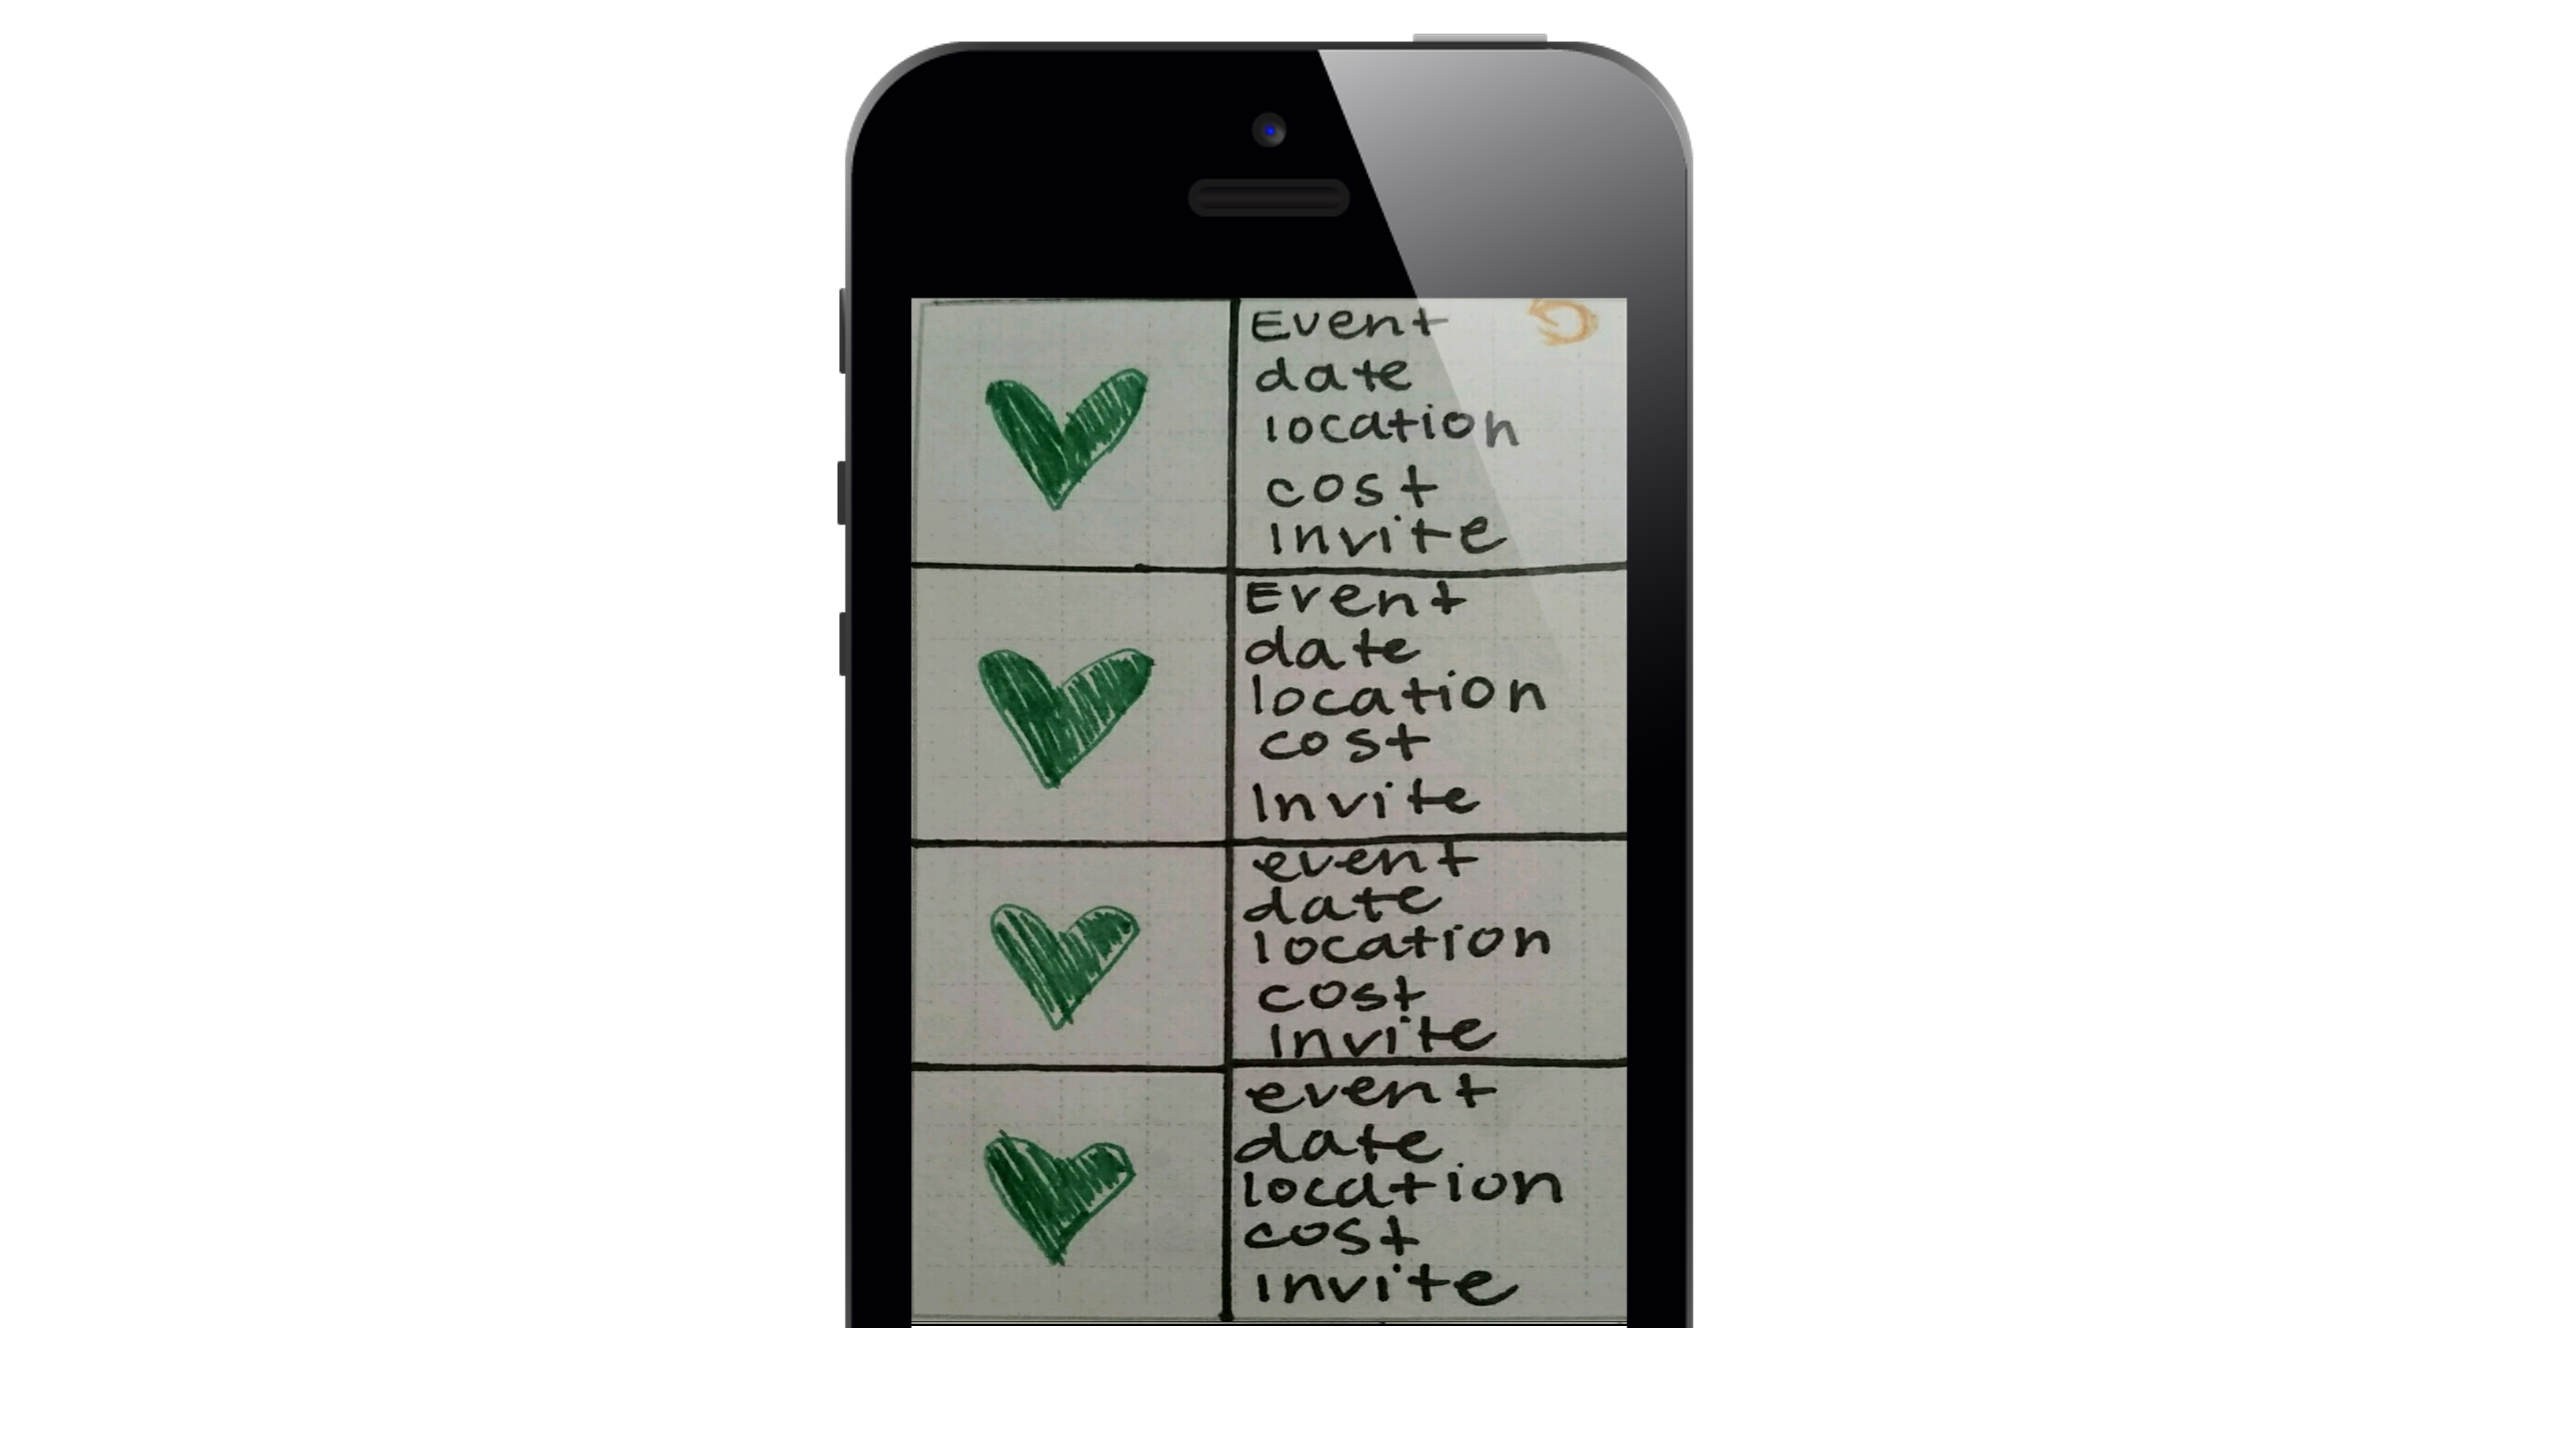 Event
date
location
cost
Invite
Event
date
location
cost
Invite
event
date
location
cost
Invite
event
date
location
cost
invite